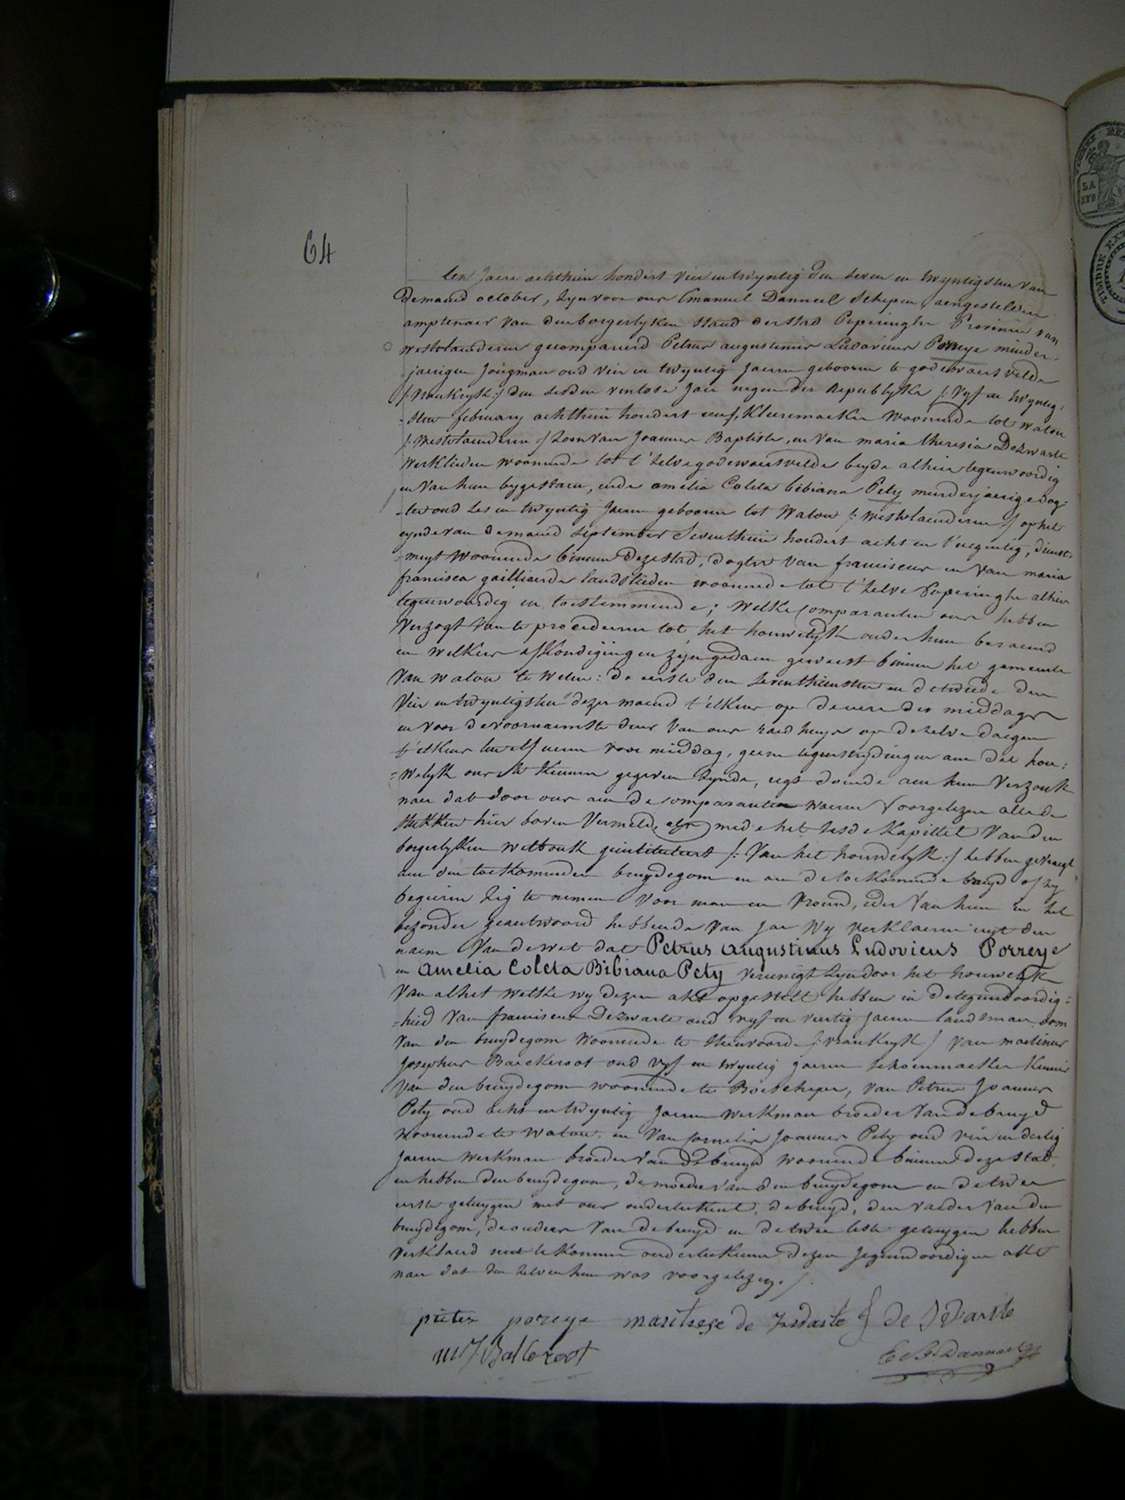 64
Ten Jaere achthien hondert vier en twyntig den seven en twyntigsten van
de maend october, zyn voor ons Emanuel Danneel Schepen, aengestelden
amptenaer van den borgerlyken staud der stad Poperinghe Provincie van
westvlaenderen gecompareerd Petrus augustinus Ludovicus Porreye minder-
jaerigen Jongman oud vier en twyntig Jaeren geboren te godewaersvelde
/:Vrankryk:/ den sesden ventose Jaer negen der Republyke /:vyf en twyntig-
-sten february achthien hondert een:/ Kleermaeker woonende tot watou
/:westvlaenderen:/ Zoon van Joannes Baptiste, en van maria theresia Dezwarte
werklieden woonende tot t'zelve godewaersvelde beyde alhier tegenwoordig
en van hun bygestaen, ende amelia Coleta bibiana Pety minderjaerige dog-
-ter oud ses en twyntig Jaeren geboren tot Watou /:westvlaenderen:/ op het
eynde van de maend september seventhien hondert acht en t'negentig, dienst-
-meyt woonende binnen deze stad, dogter van franciscus en van maria
francisca gailliaerde landslieden woonende tot t'zelve Poperinghe alhier
tegenwoordig en toestemmende; welke comparanten ons hebben
verzogt van te procederen tot het houwelyk onder hun beraemd
en welkers afkondigingen zyn gedaen geweest binnen het gemeente
van watou te weten: de eerste den seventhiensten en de tweede den
vier en twyntigsten dezer maend t'elkens op de ure des middags
en voor de voornaemste deure van ons raedhuys op de zelve daegen
t'elkens ten elf uren voor middag, geene tegenstrydingen aen dit hou-
-welyk ons te kennen gegeven zynde, regt doende aen hun verzoek
naer dat door ons aen de comparanten waeren voorgelezen alle de
stukken hier boven vermeld, mede het sesde kapittel van den
borgerlyken wetboek geintituleert /:van het houwelyk:/ hebben gevraegt
aen den toekomenden bruydegom en aen de toekomende bruyd of zy
begeeren zig te nemen voor man en vrouw, ider van hun in het
bezonder geantwoord hebbende van Jae wy verklaeren uyt den
naem van de wet dat Petrus augustinus Ludovicus Porreye
en amelia Coleta Bibiana Pety vereenigt zyn door het houwelyk
van al het welke wy dezen akt opgestelt hebben in de tegenwoordig-
-hied van franciscus Dezwarte oud vyf en veertig Jaeren landsman oom
van den bruydegom woonende te Steenvoorde /:vrankryk:/ van martinus
Josephus Baeckeroot oud vyf en twyntig Jaeren schoenmaeker kennis
van den bruydegom woonende te Boeschepe, van Petrus Joannes
Pety oud acht en twyntig Jaeren werkman broeder van de bruyd
woonende te watou en van Cornelis Joannes Pety oud vier en dertig
Jaeren werkman broeder van de bruyd woonende binnen deze stad
en hebben den bruydegom, de moeder van den bruydegom en de twee
eerste getuygen met ons onderteekent, de bruyd, den vaeder van den
bruydegom, de ouders van de bruyd en de twee leste getuygen hebben
verklaerd niet te konnen onderteekenen dezen tegenwoordigen akt
naer dat den zelven hun was voorgelezen./.
pieter poreye maritrese de zwarte f de Swarte